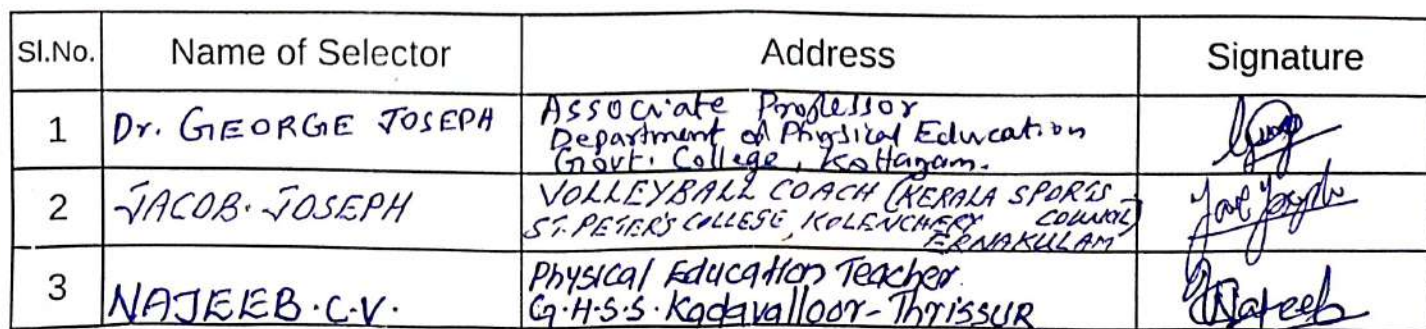 Sl.No. Name of Selector Address Signature
1 Dr. GEORGE JOSEPH Associate Professor
Department of Physical Education
Govt. College, Kottayam.
2 JACOB. JOSEPH VOLLEYBALL COACH (KERALA SPORTS
COUNCIL)
ST. PETER'S COLLEGE, KOLENCHERY
ERNAKULAM
3 NAJEEB.C.V. Physical Education Teacher.
G.H.S.S. Kadavalloor-Thrissur Najeeb